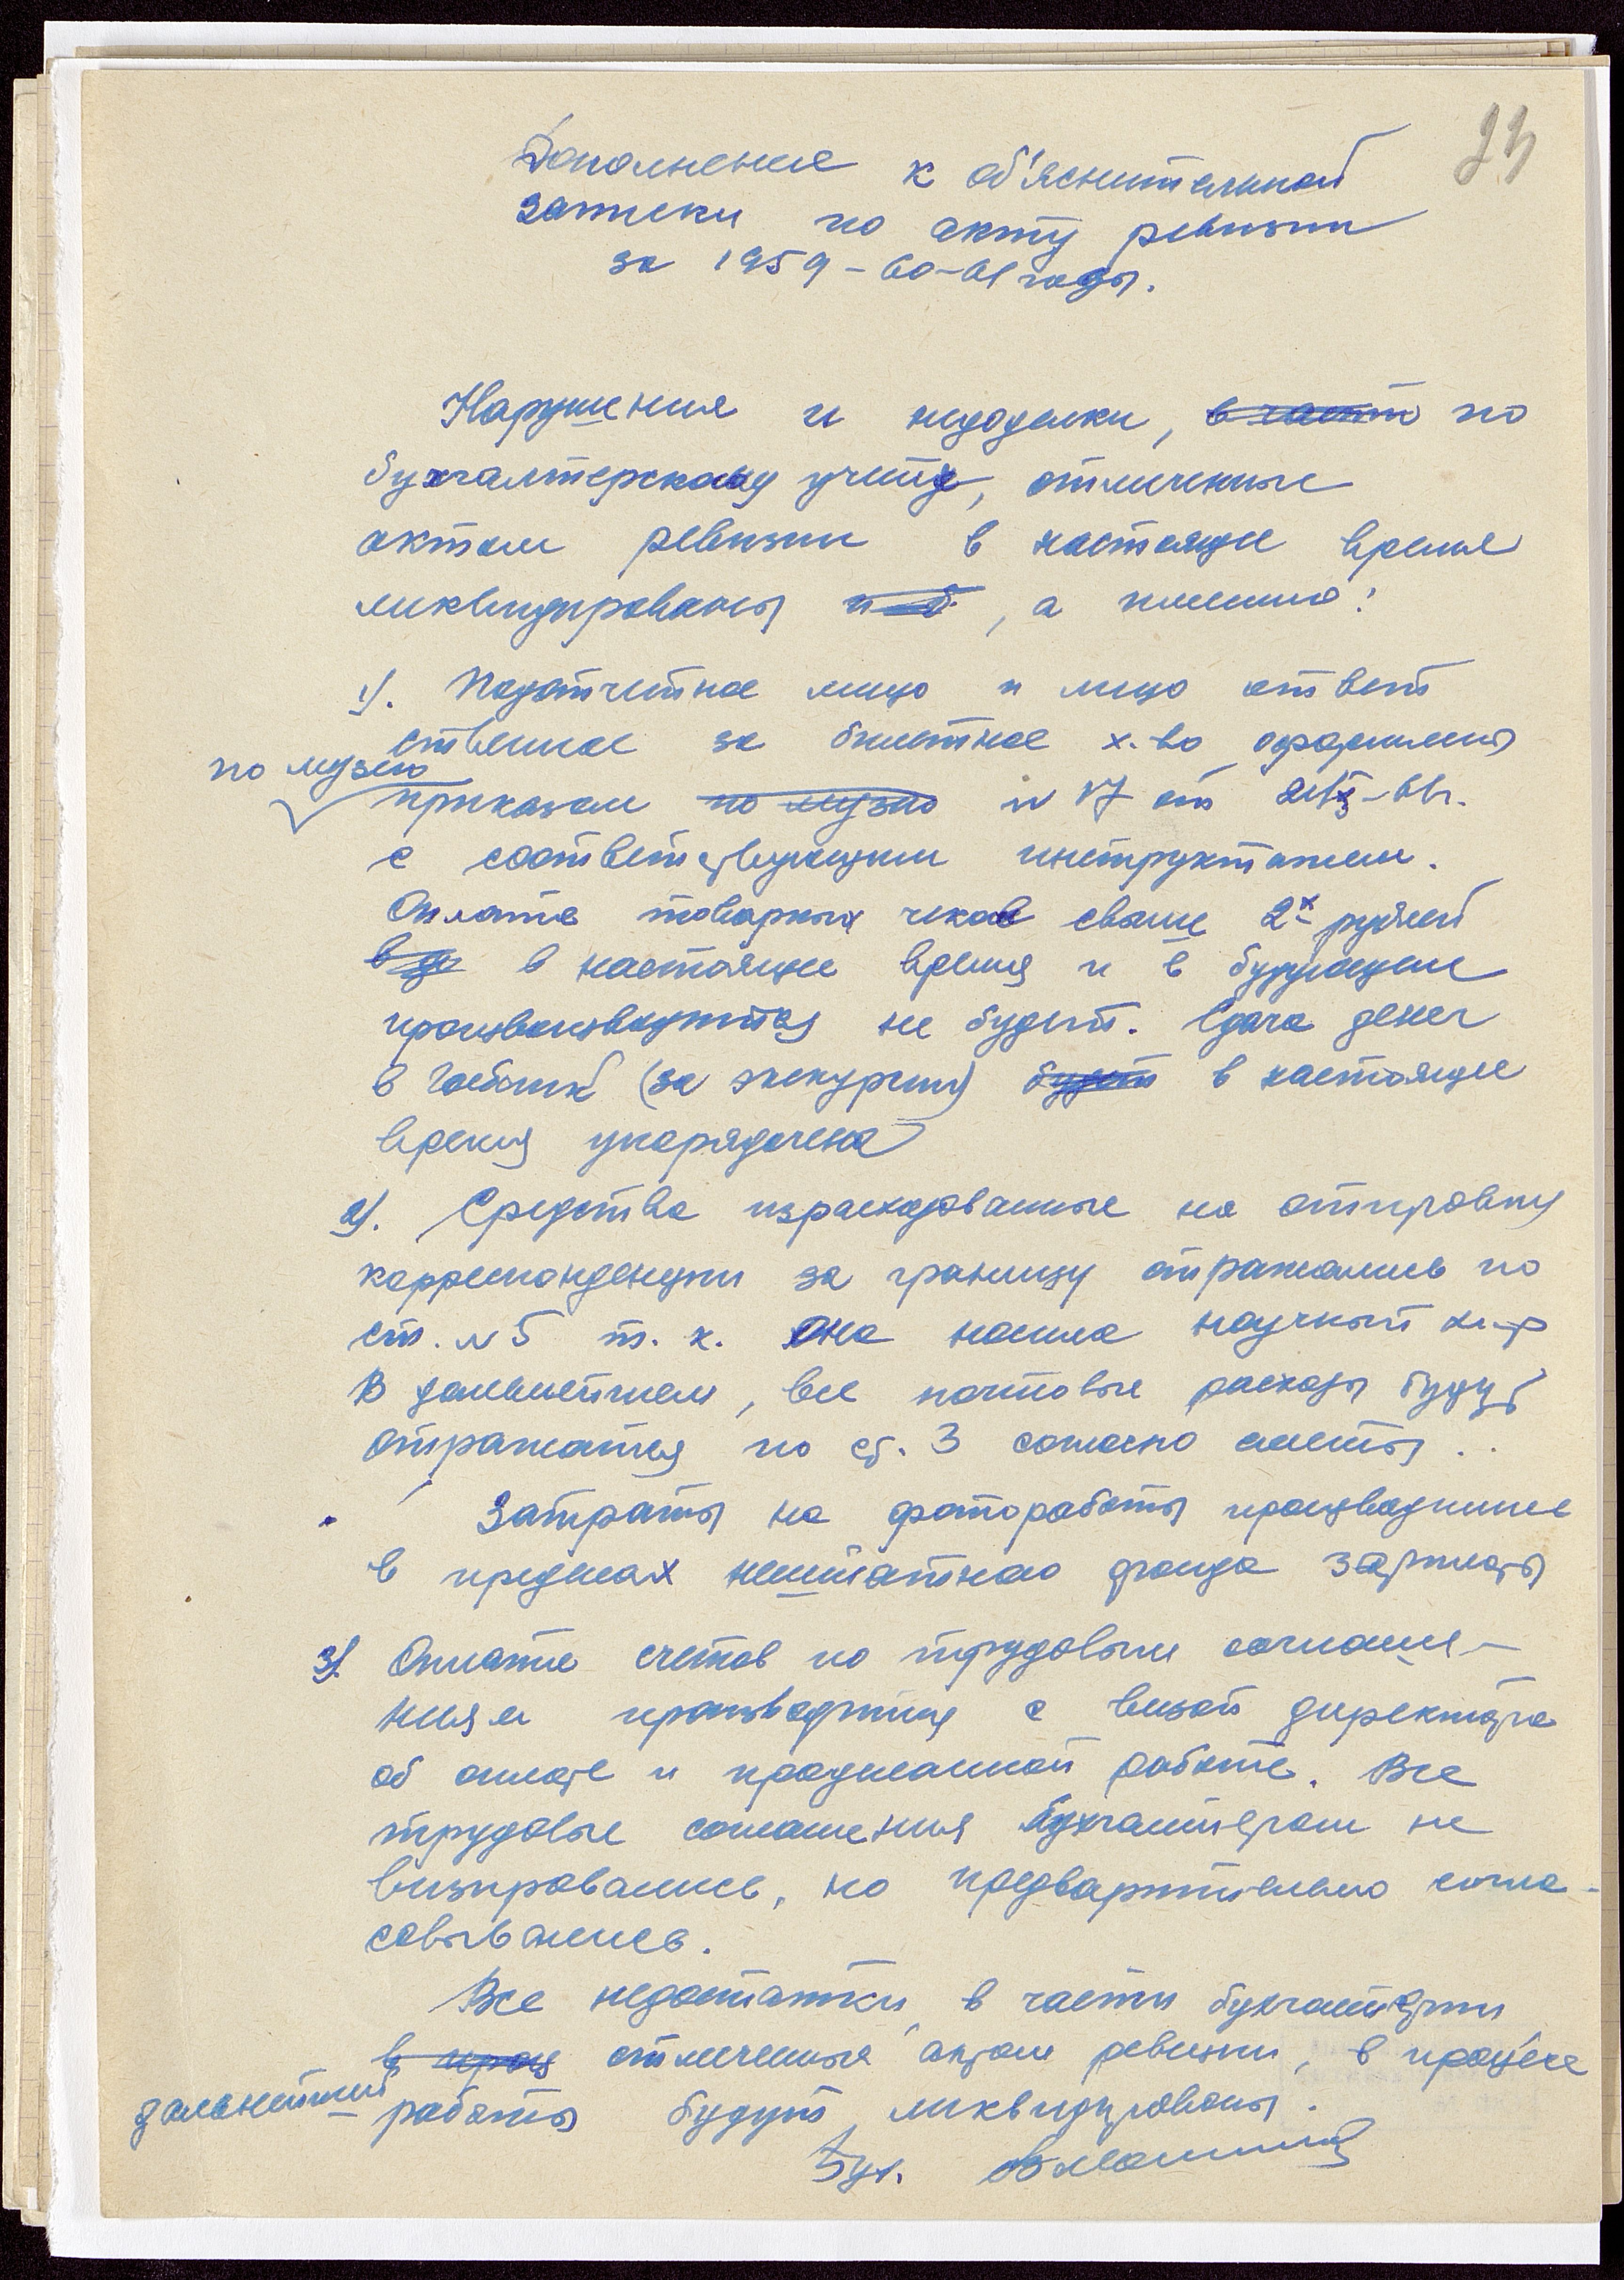 23
Дополнение к об'яснительной
записки по акту ревизии
за 1959-60-61 годы.
Нарушения и недоделки, в части по
бухгалтерскому учету, отмеченные
актом ревизии в настоящее время
ликвидированы и б , а именно:
1). Подотчетное лицо и лицо ответ
ственное за билетное х-во оформлены
по музею
приказом по музею № 17 от
с соответствующим инструктажем.
Оплата товарных чеков свыше 2х рублей
в настоящее время и в будущем
производиться не будет. Сдача денег
в Госбанк (за экскурсии) будет в настоящее
время упорядочена
2). Средства израсходованные на отправку
корреспонденции за границу отражались по
ст. № 5 т. к. она носила научный х-р
В дальнейшем, все почтовые расходы будут
отражатся по ст. 3 согласно сметы..
Затраты на фотоработы производились
в пределах нештатного фонда зарплаты
3). Оплата счетов по трудовым соглаше-
ниям производится с визой директора
об оплате и проделанной работе. Все
трудовые соглашения бухгалтером не
визировались, но предварительно согла-
совывались.
Все недостатки в части бухгалтерии
отмеченные актом ревизии, в процессе
дальнейшей
работы будут ликвидированы.
Бух.